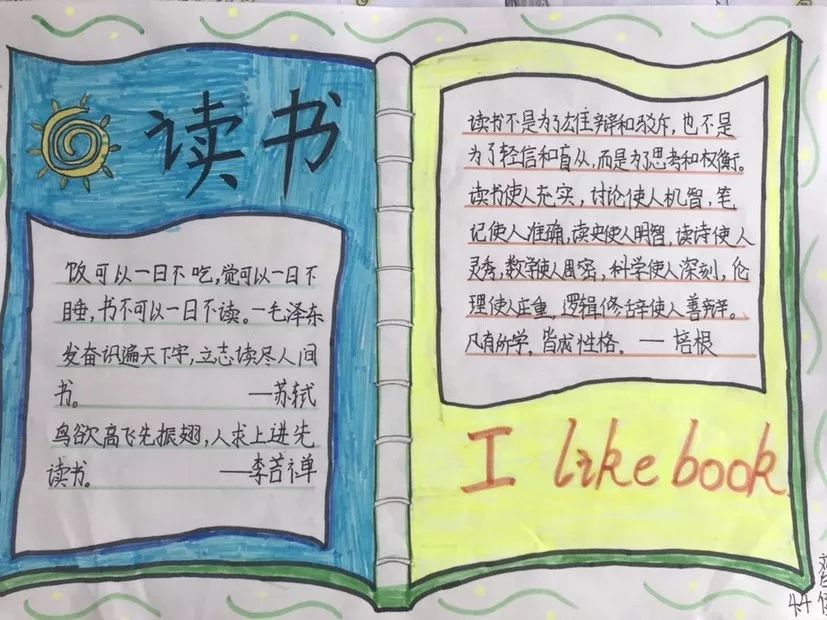 读书
饭可以一日不吃,觉可以一日不
睡,书不可以一日不读。—毛泽东
发奋识遍天下字,立志读尽人间
书。 —苏轼
鸟欲高飞先振翅,人求上进先
读书。 —李若禅
读书不是为了雄辩和驳斥,也不是
为了轻信和盲从,而是为了思考和权衡。
读书使人充实,讨论使人机智,笔
记使人准确,读史使人明智,读诗使人
灵秀,数学使人周密,科学使人深刻,伦
理使人庄重,逻辑修辞使人善辩。
凡有所学,皆成性格。—培根
I like book